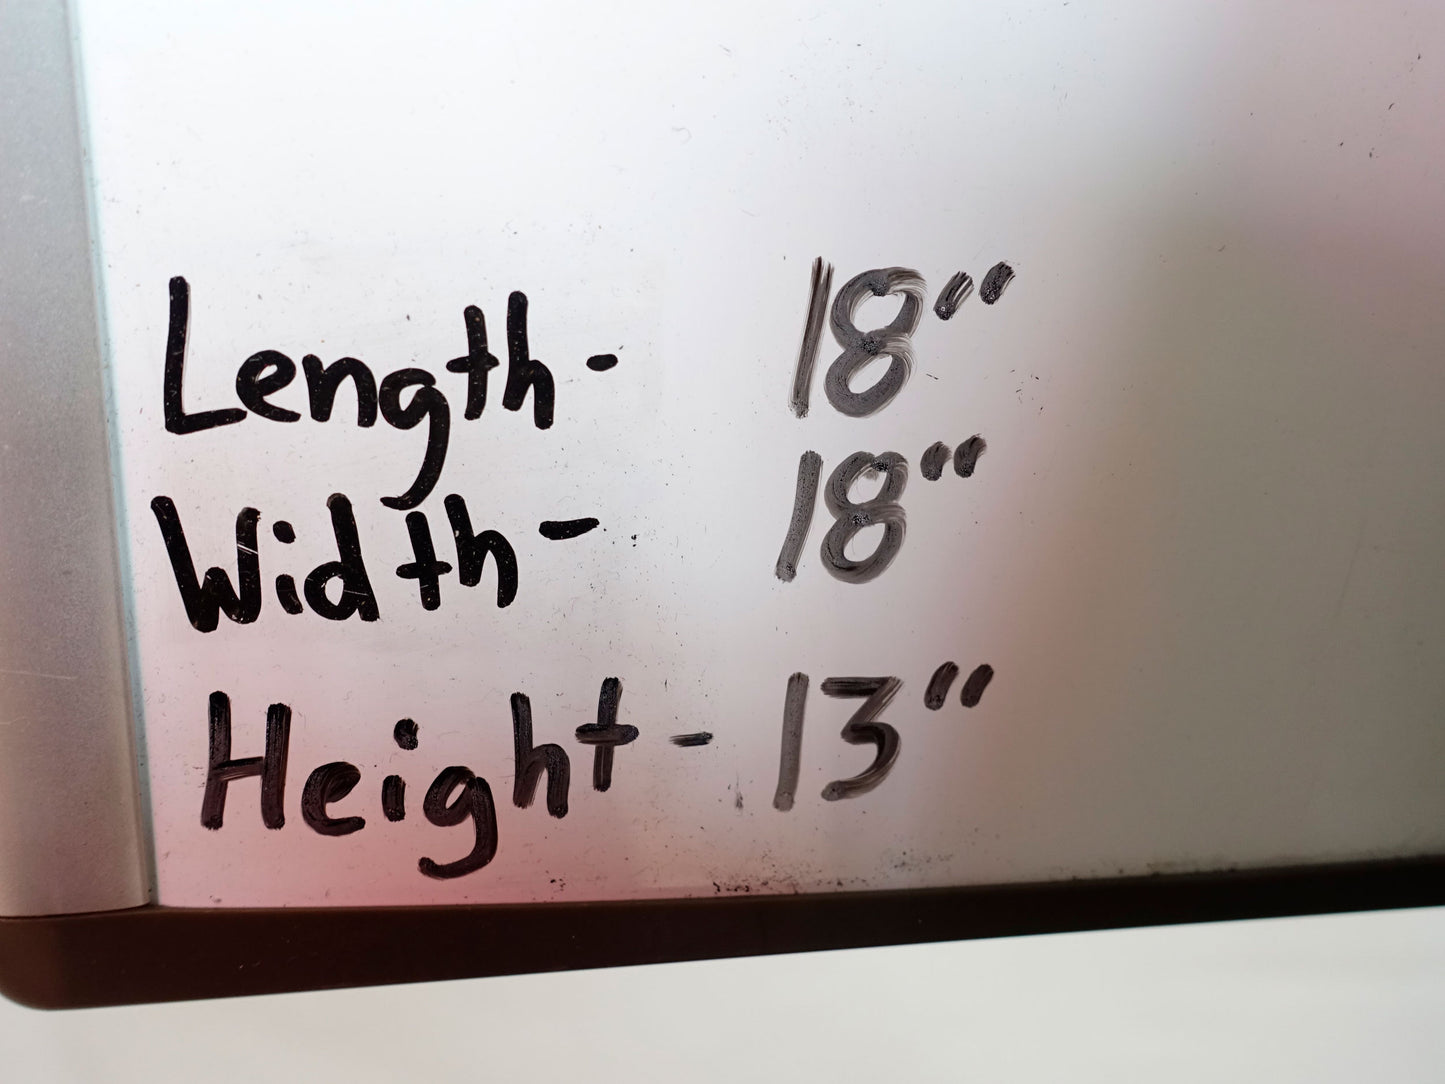 Length- 18"
Width- 18"
Height- 13"